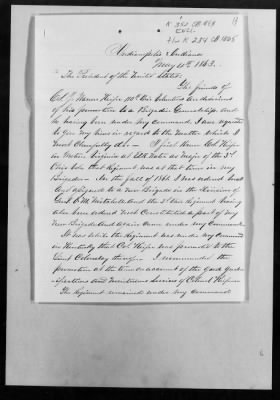 Indianapolis Indiana
May 11th 1863.
The President of the United States:
The friends of
Col. J. Warren Keifer 110th Ohio Volunteers are desirous
of his promotion to a Brigadier Generalship and
he having been under my command I am urged
to give my views in regard to the matter which I
most cheerfully do — I first knew Col Keifer
in Western Virginia at Elk Water as Major of the 3rd
Ohio Vols that Regiment was at that time in my
Brigade — In the fall of 1861 I was ordered
and assigned to a New Brigade in the Division of
Genl O M Mitchell and the 3rd Ohio Regiment having
also been ordered West constituted a part of my
New Brigade and again came under my command
It was while the Regiment was under my command
in Kentucky that Col. Keifer was promoted to the
Lieut Colonelcy thereof — I recommended the
promotion at the time on account of the good qual-
ifications and meritorious services of Colonel Keifer
The Regiment remained under my command